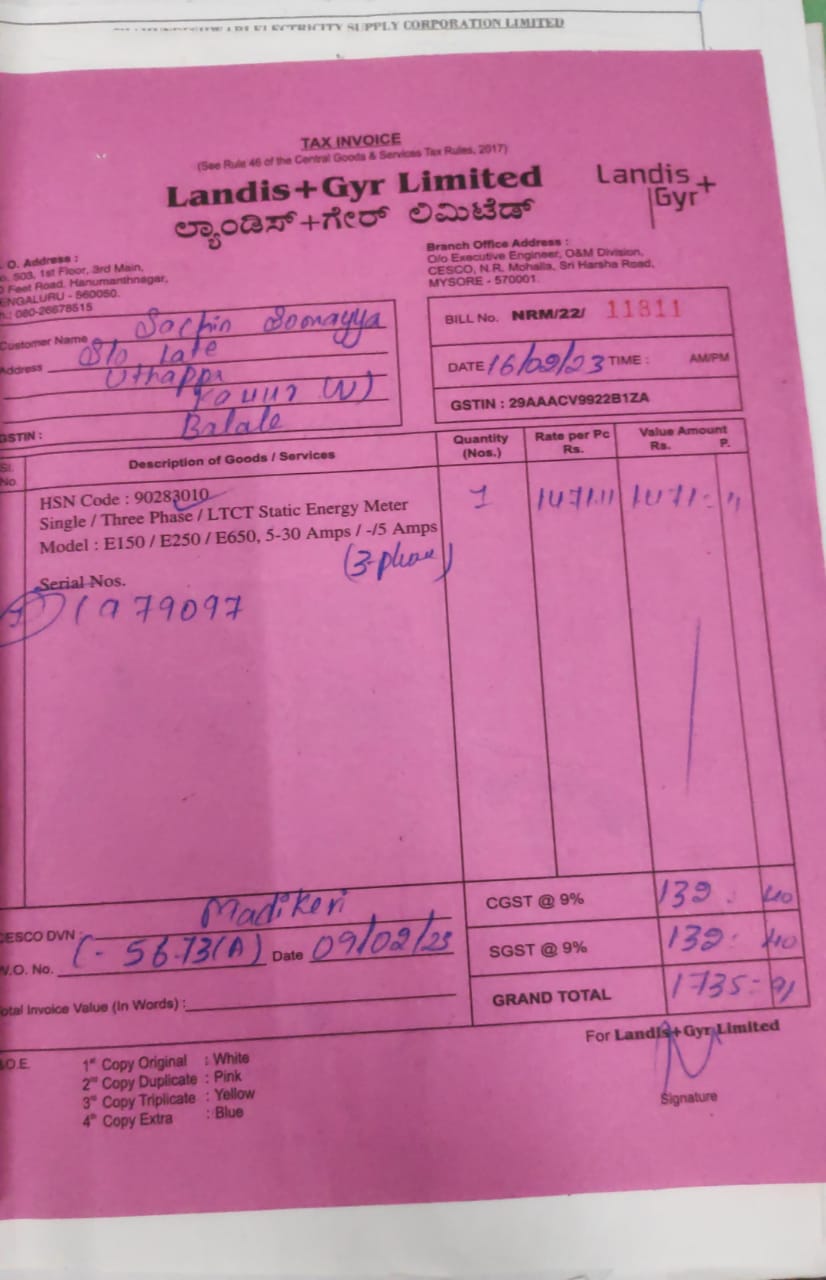 ELECTRICITY SUPPLY CORPORATION LIMITED
TAX INVOICE
(See Rule 46 of the Central Goods & Services Tax Rules, 2017)
Landis+Gyr Limited
ಲ್ಯಾಂಡಿಸ್+ಗೇರ್ ಲಿಮಿಟೆಡ್
Landis+
Gyr
. O. Address :
o. 503, 1st Floor, 3rd Main,
Feet Road, Hanumanthnagar,
ENGALURU - 560050.
h.: 080-26678515
Branch Office Address :
O/o Executive Engineer, O&M Division,
CESCO, N.R. Mohalla, Sri Harsha Road,
MYSORE - 570001.
Customer Name Sachin Somayya
Address S/o Late
Uthappa
W)
Balale
GSTIN :
BILL No. NRM/22/ 11811
DATE 16/02/23 TIME : AM/PM
GSTIN : 29AAACV9922B1ZA
Sl. No. Description of Goods / Services Quantity (Nos.) Rate per Pc Rs. Value Amount Rs. P.
HSN Code : 90283010 1 1471.11 1471 - 11
Single / Three Phase / LTCT Static Energy Meter
Model : E150 / E250 / E650, 5-30 Amps / -/5 Amps
(3-phase)
Serial Nos.
1979097
CESCO DVN : Madikeri
W.O. No. 56-73(A) Date 09/02/23
Total Invoice Value (In Words) :
CGST @ 9% 132 : 40
SGST @ 9% 132 : 40
GRAND TOTAL 1735 = 91
For Landis+Gyr Limited
Signature
.O.E.
1st Copy Original : White
2nd Copy Duplicate : Pink
3rd Copy Triplicate : Yellow
4th Copy Extra : Blue